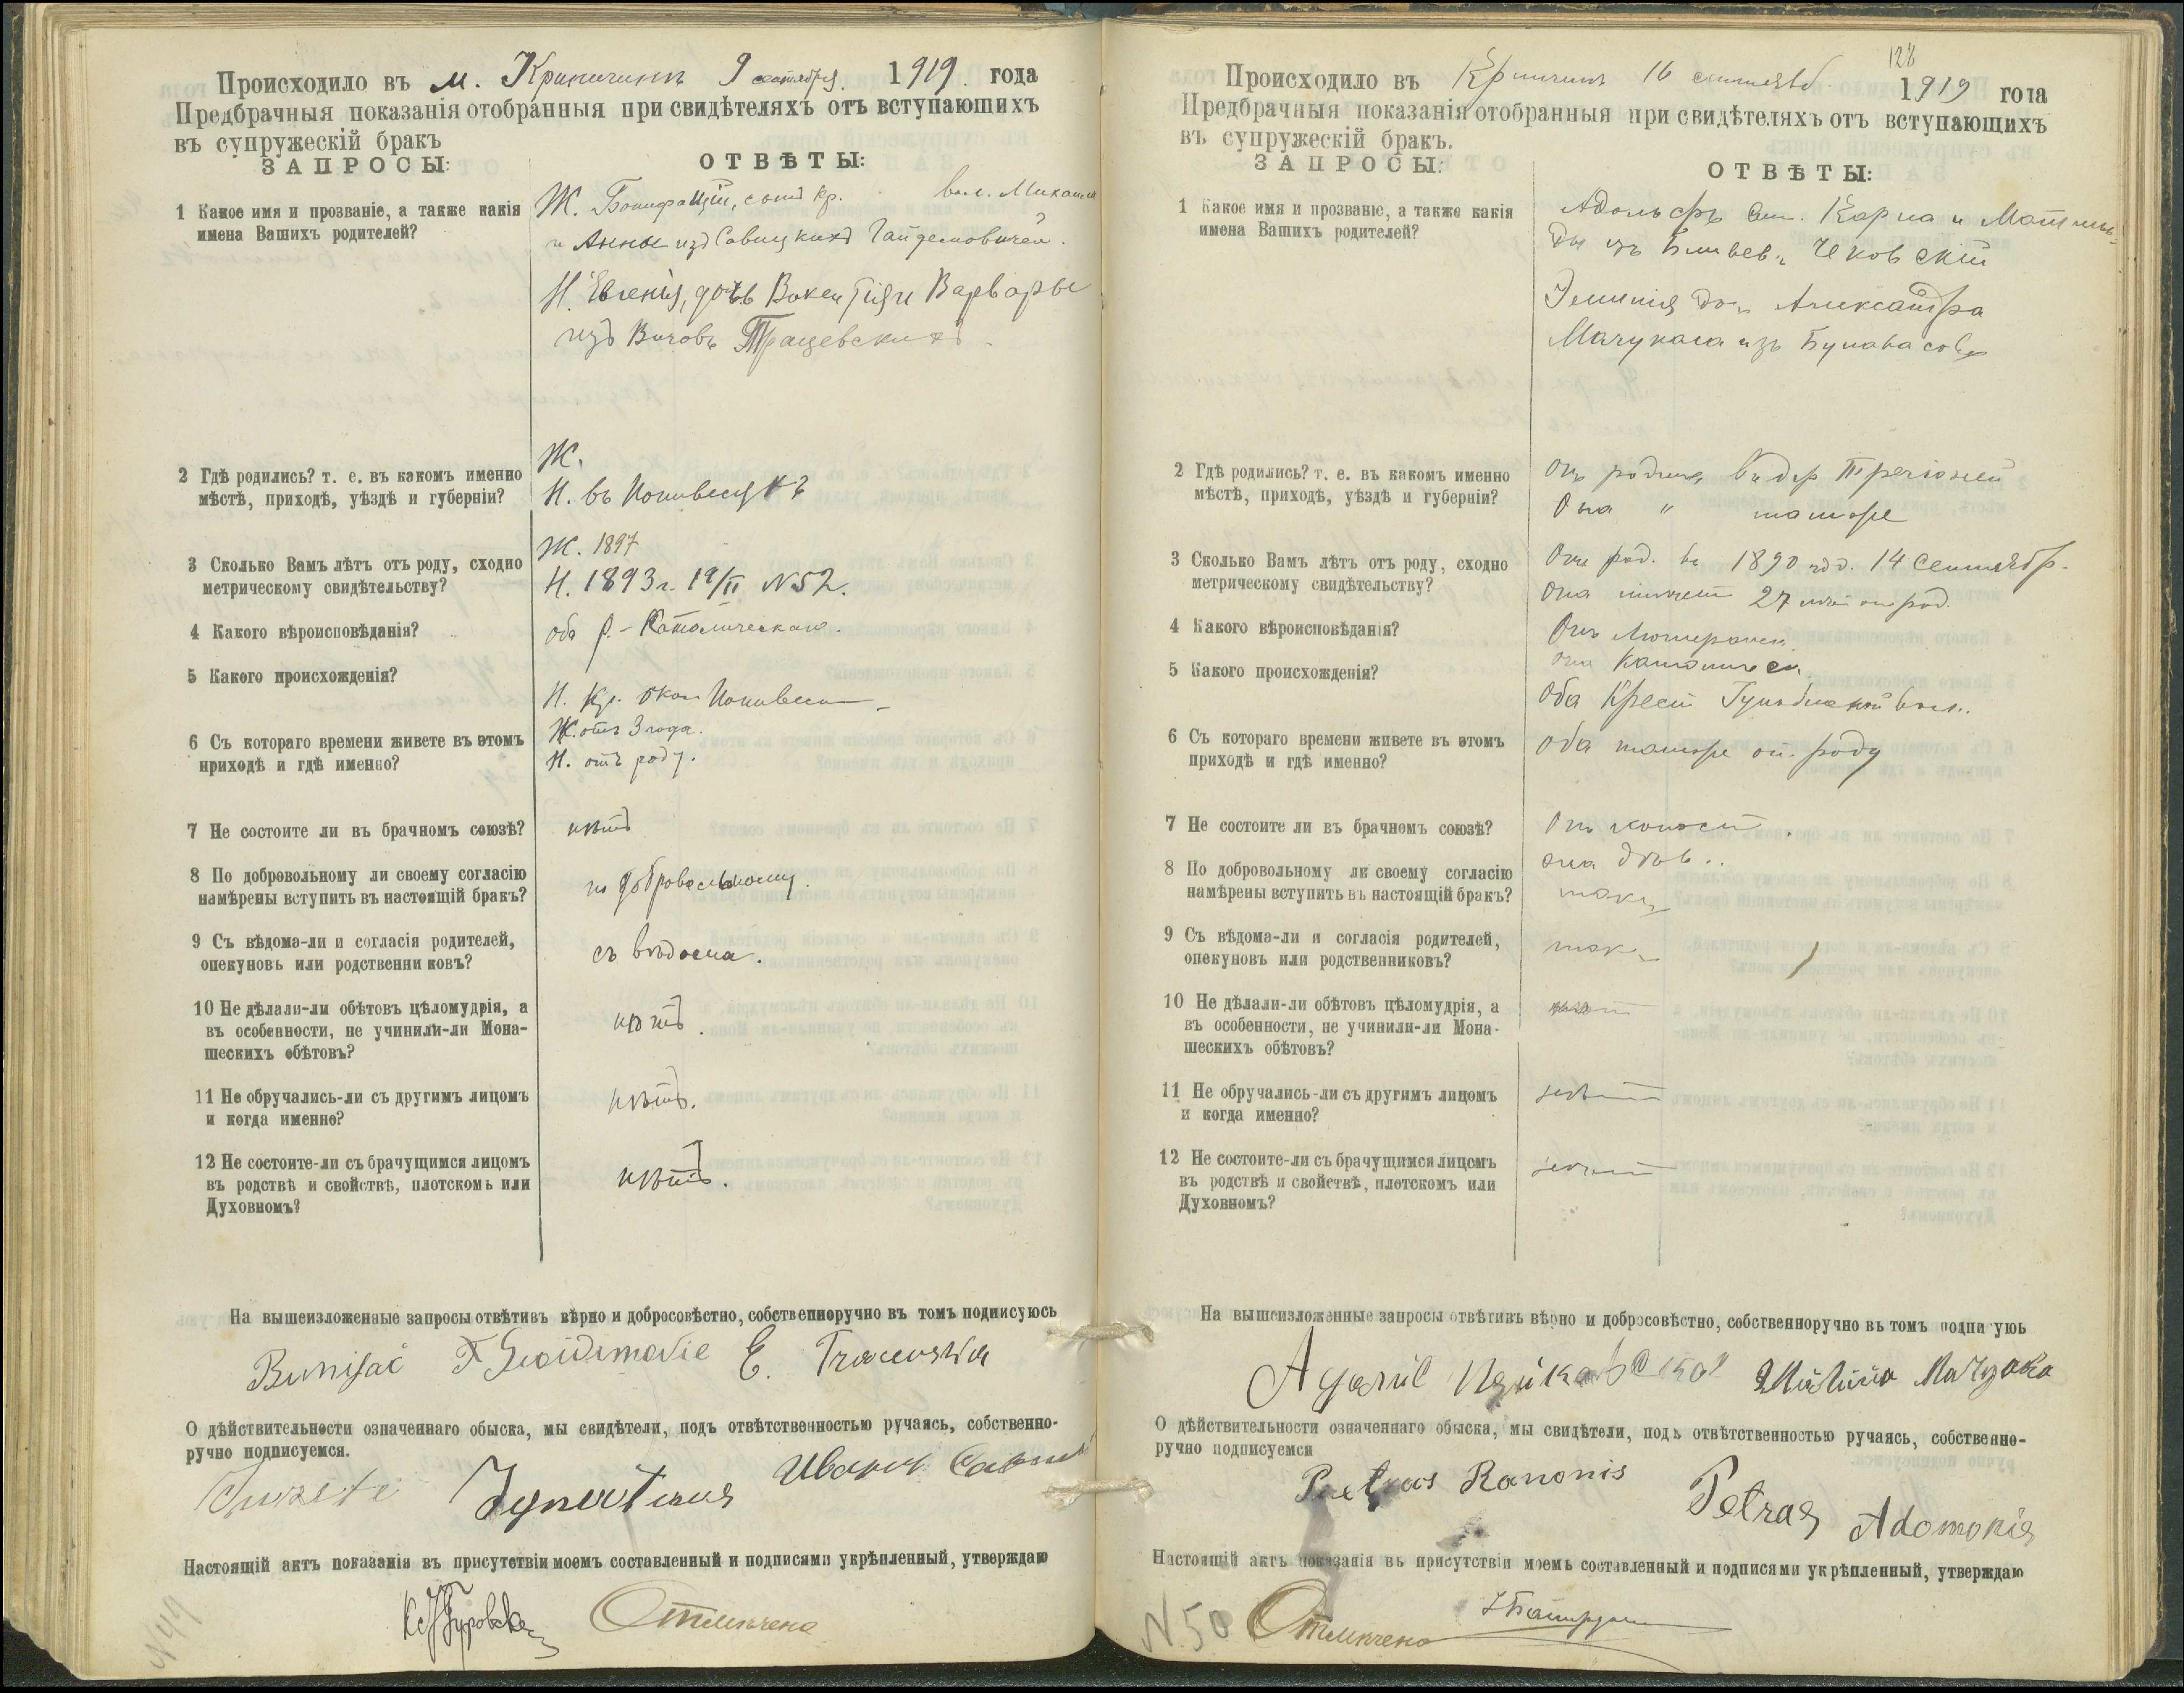 Происходило въ м. Криничинъ 9 сентября 1919 года
Предбрачныя показанія отобранныя при свидѣтеляхъ отъ вступающихъ
въ супружескій бракъ
ЗАПРОСЫ:
ОТВѢТЫ:
1 Какое имя и прозваніе, а также какія
имена Вашихъ родителей?
Ж. Бонифацій, сынъ кр. Михаила
и Анны изъ Савицкихъ Гайдемовичей.
Н. Евгенія, дочь Викентія и Варвары
изъ Трацевскихъ
2 Гдѣ родились? т. е. въ какомъ именно
мѣстѣ, приходѣ, уѣздѣ и губерніи?
Ж.
Н. въ
3 Сколько Вамъ лѣтъ отъ роду, сходно
метрическому свидѣтельству?
Ж. 1897
Н. 1893 г. N 52.
4 Какого вѣроисповѣданія?
оба р.-Католическаго.
5 Какого происхожденія?
Н. Кр.
6 Съ котораго времени живете въ этомъ
приходѣ и гдѣ именно?
Ж. отъ 3 года.
Н. отъ роду.
7 Не состоите ли въ брачномъ союзѣ?
нѣтъ
8 По добровольному ли своему согласію
намѣрены вступить въ настоящій бракъ?
по добровольному.
9 Съ вѣдома-ли и согласія родителей,
опекуновъ или родственниковъ?
съ вѣдома.
10 Не дѣлали-ли обѣтовъ цѣломудрія, а
въ особенности, не учинили-ли Мона-
шескихъ обѣтовъ?
нѣтъ.
11 Не обручались-ли съ другимъ лицомъ
и когда именно?
нѣтъ.
12 Не состоите-ли съ брачущимся лицомъ
въ родствѣ и свойствѣ, плотскомъ или
Духовномъ?
нѣтъ.
На вышеизложенные запросы отвѣтивъ вѣрно и добросовѣстно, собственноручно въ томъ подписуюсь
E.
О дѣйствительности означеннаго обыска, мы свидѣтели, подъ отвѣтственностью ручаясь, собственно-
ручно подписуемся.
Иванъ
Настоящій актъ показанія въ присутствіи моемъ составленный и подписями укрѣпленный, утверждаю
Отмѣчено
N 49
128
Происходило въ 16 сентяб. 1919 года
Предбрачныя показанія отобранныя при свидѣтеляхъ отъ вступающихъ
въ супружескій бракъ.
ЗАПРОСЫ:
ОТВѢТЫ:
1 Какое имя и прозваніе, а также какія
имена Вашихъ родителей?
Адольфъ Карла и Матиль-
ды изъ Чековскій
Эмилія Александра
Мачукаса изъ
2 Гдѣ родились? т. е. въ какомъ именно
мѣстѣ, приходѣ, уѣздѣ и губерніи?
Онъ въ дер
Она " тамъ же
3 Сколько Вамъ лѣтъ отъ роду, сходно
метрическому свидѣтельству?
Онъ род. въ 1890 год. 14 Сентябр.
Она имѣетъ 27 лѣтъ от род.
4 Какого вѣроисповѣданія?
Онъ Лютеранск.
она Католическ.
5 Какого происхожденія?
Оба Крест
6 Съ котораго времени живете въ этомъ
приходѣ и гдѣ именно?
Оба тамъ же от роду
7 Не состоите ли въ брачномъ союзѣ?
Онъ холост.
она дѣв..
8 По добровольному ли своему согласію
намѣрены вступить въ настоящій бракъ?
такъ
9 Съ вѣдома-ли и согласія родителей,
опекуновъ или родственниковъ?
такъ
10 Не дѣлали-ли обѣтовъ цѣломудрія, а
въ особенности, не учинили-ли Мона-
шескихъ обѣтовъ?
нѣтъ
11 Не обручались-ли съ другимъ лицомъ
и когда именно?
нѣтъ
12 Не состоите-ли съ брачущимся лицомъ
въ родствѣ и свойствѣ, плотскомъ или
Духовномъ?
нѣтъ
На вышеизложенные запросы отвѣтивъ вѣрно и добросовѣстно, собственноручно въ томъ подписуюь
О дѣйствительности означеннаго обыска, мы свидѣтели, подъ отвѣтственностью ручаясь, собственно-
ручно подписуемся
Petras Ranonis
Petras Adomonis
Настоящій актъ показанія въ присутствіи моемъ составленный и подписями укрѣпленный, утверждаю
N 50 Отмѣчено